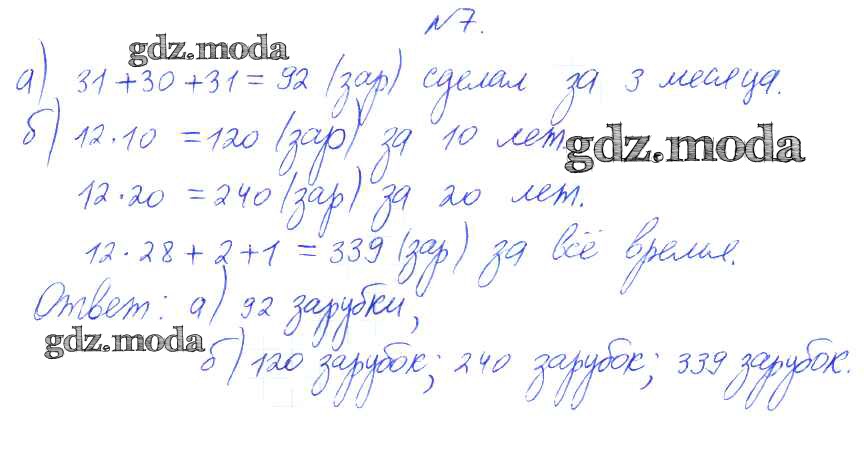 №7.
gdz.moda
а) 31+30+31=92 (зар) сделал за 3 месяца.
б) 12·10 =120 (зар) за 10 лет.
gdz.moda
12·20 =240 (зар) за 20 лет.
12·28+2+1 =339 (зар) за всё время.
Ответ: а) 92 зарубки,
gdz.moda
б) 120 зарубок; 240 зарубок; 339 зарубок.